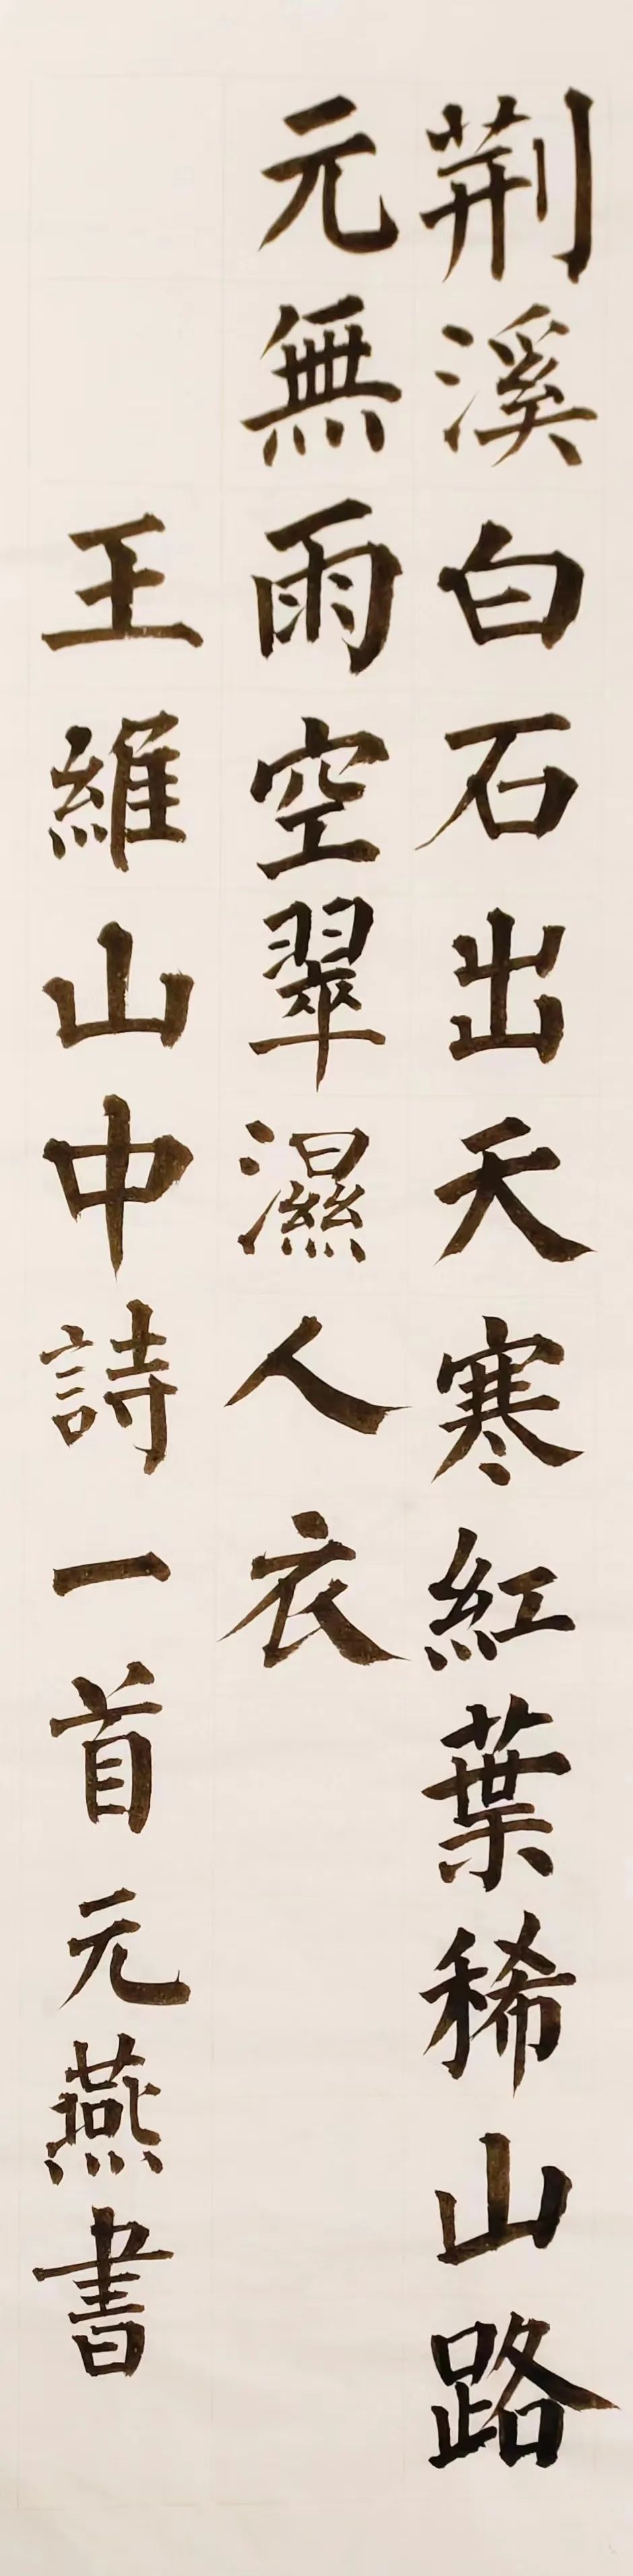 荆溪白石出天寒紅葉稀山路
元無雨空翠濕人衣
王維山中詩一首元燕書